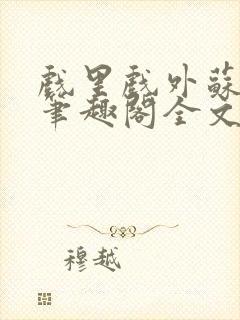 戲里戲外蘇
筆趣閣全文
穆越